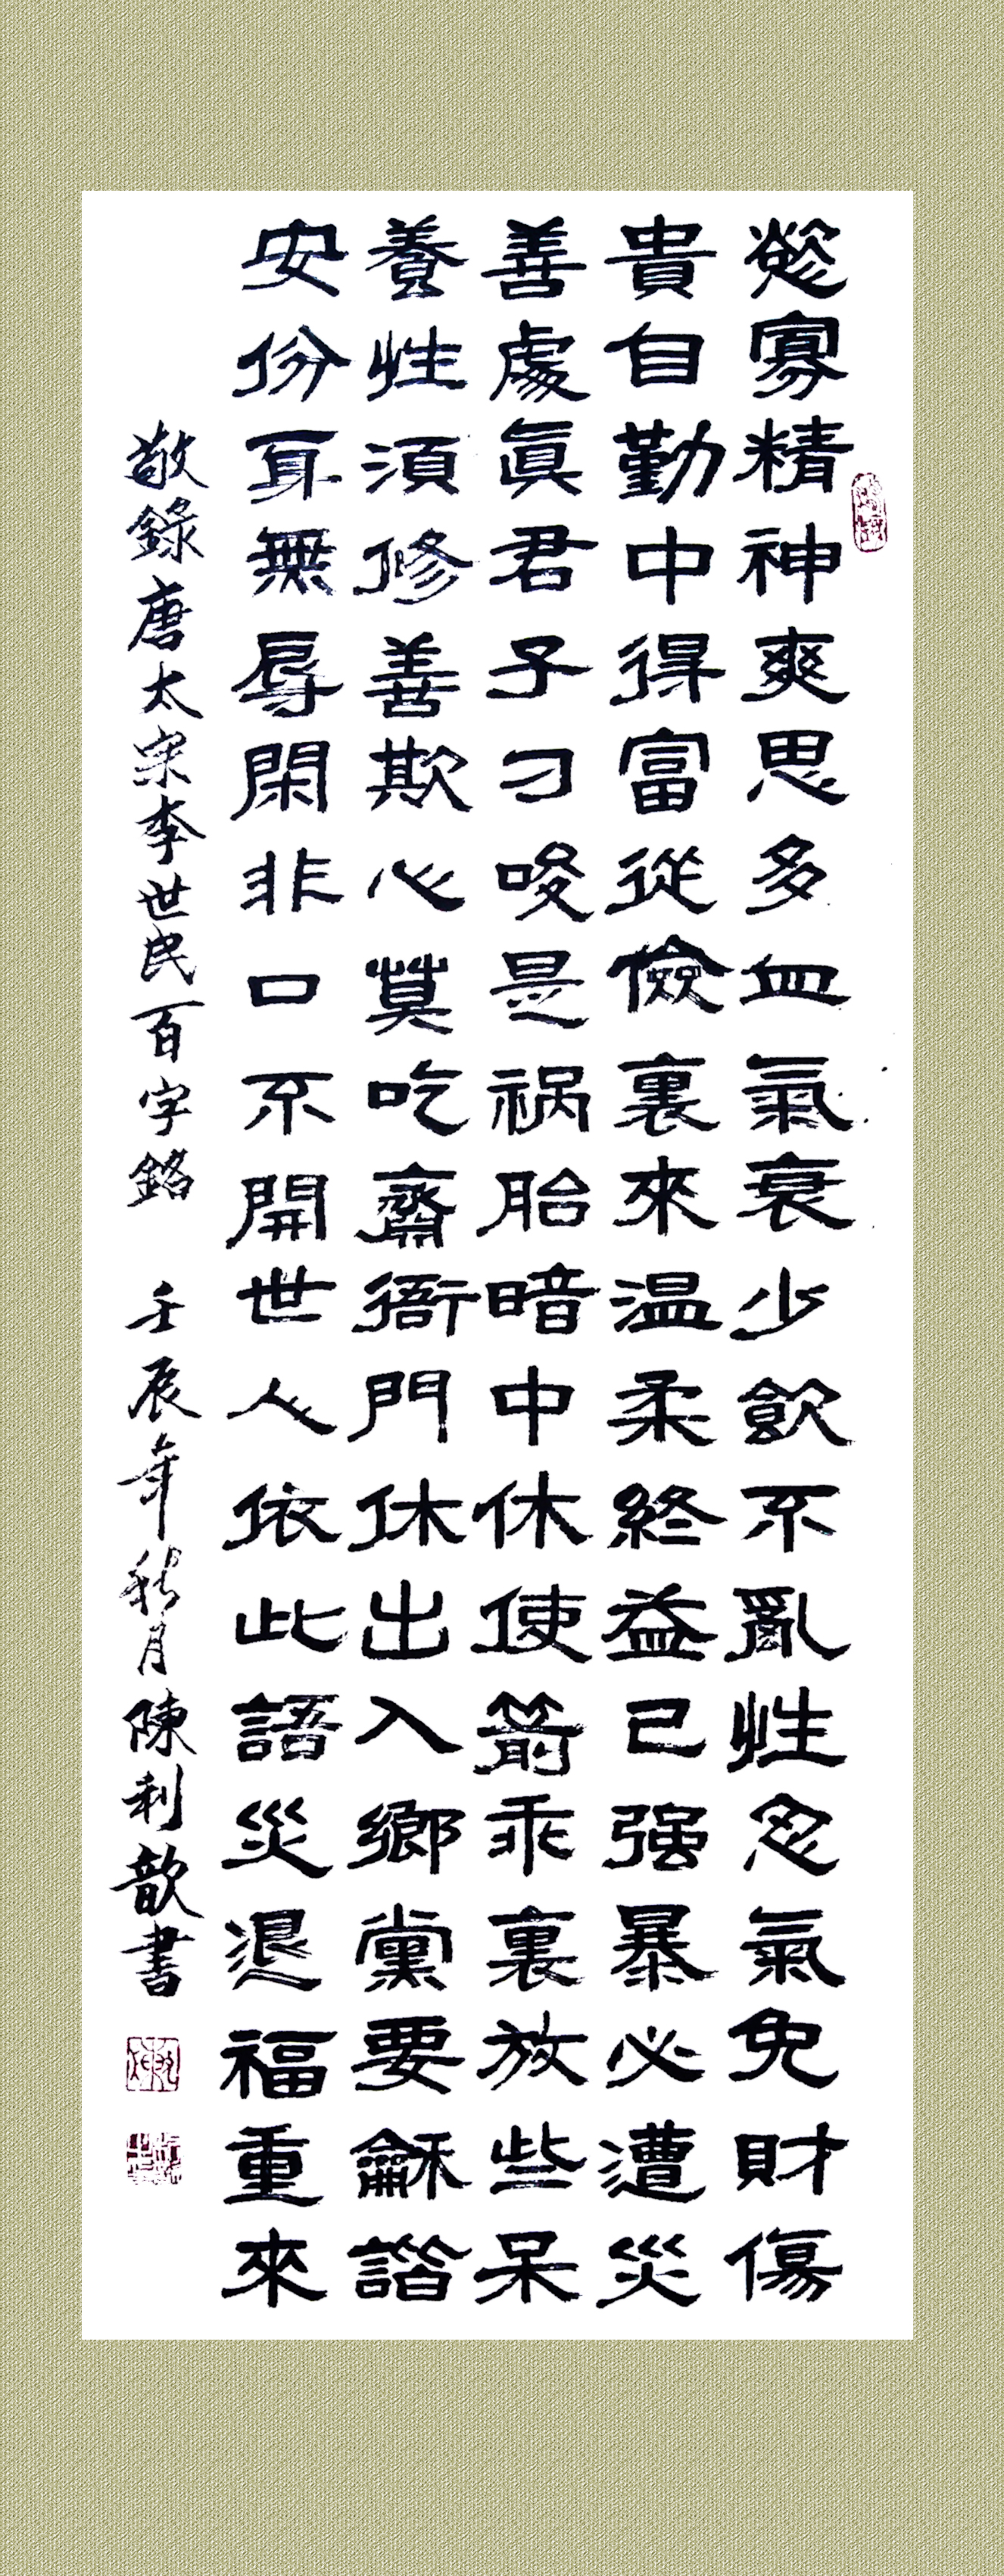 慾寡精神爽思多血氣衰少飲不亂性忍氣免財傷
貴自勤中得富從儉裏來温柔終益己强暴必遭災
善處真君子刁唆是祸胎暗中休使箭乖裏放些呆
養性須修善欺心莫吃齋衙門休出入鄉黨要龢諧
安份身無辱閑非口不開世人依此語災退福重來
敬錄唐太宗李世民百字銘 壬辰年秋月陳利歆書